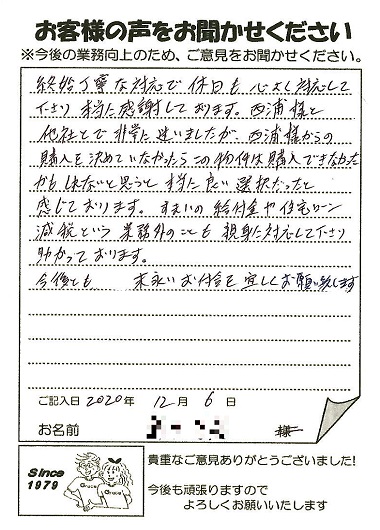 お客様の声をお聞かせください
※今後の業務向上のため、ご意見をお聞かせください。
終始丁寧な対応で休日も心よく対応して
下さり本当に感謝しております。西浦様と
他社とで非常に迷いましたが、西浦様からの
購入を決めていなかったらこの物件は購入できなかた
かもしれないと思うと本当に良い選択だったと
感じております。すまいの給付金や住宅ローン
減税という業務外のことも親身に対応して下さり
助かっております。
今後とも 末永いお付合を宜しくお願い致します
ご記入日 2020年 12月 6日
お名前 様
Since
1979
Grace
Grace
貴重なご意見ありがとうございました!
今後も頑張りますので
よろしくお願いいたします